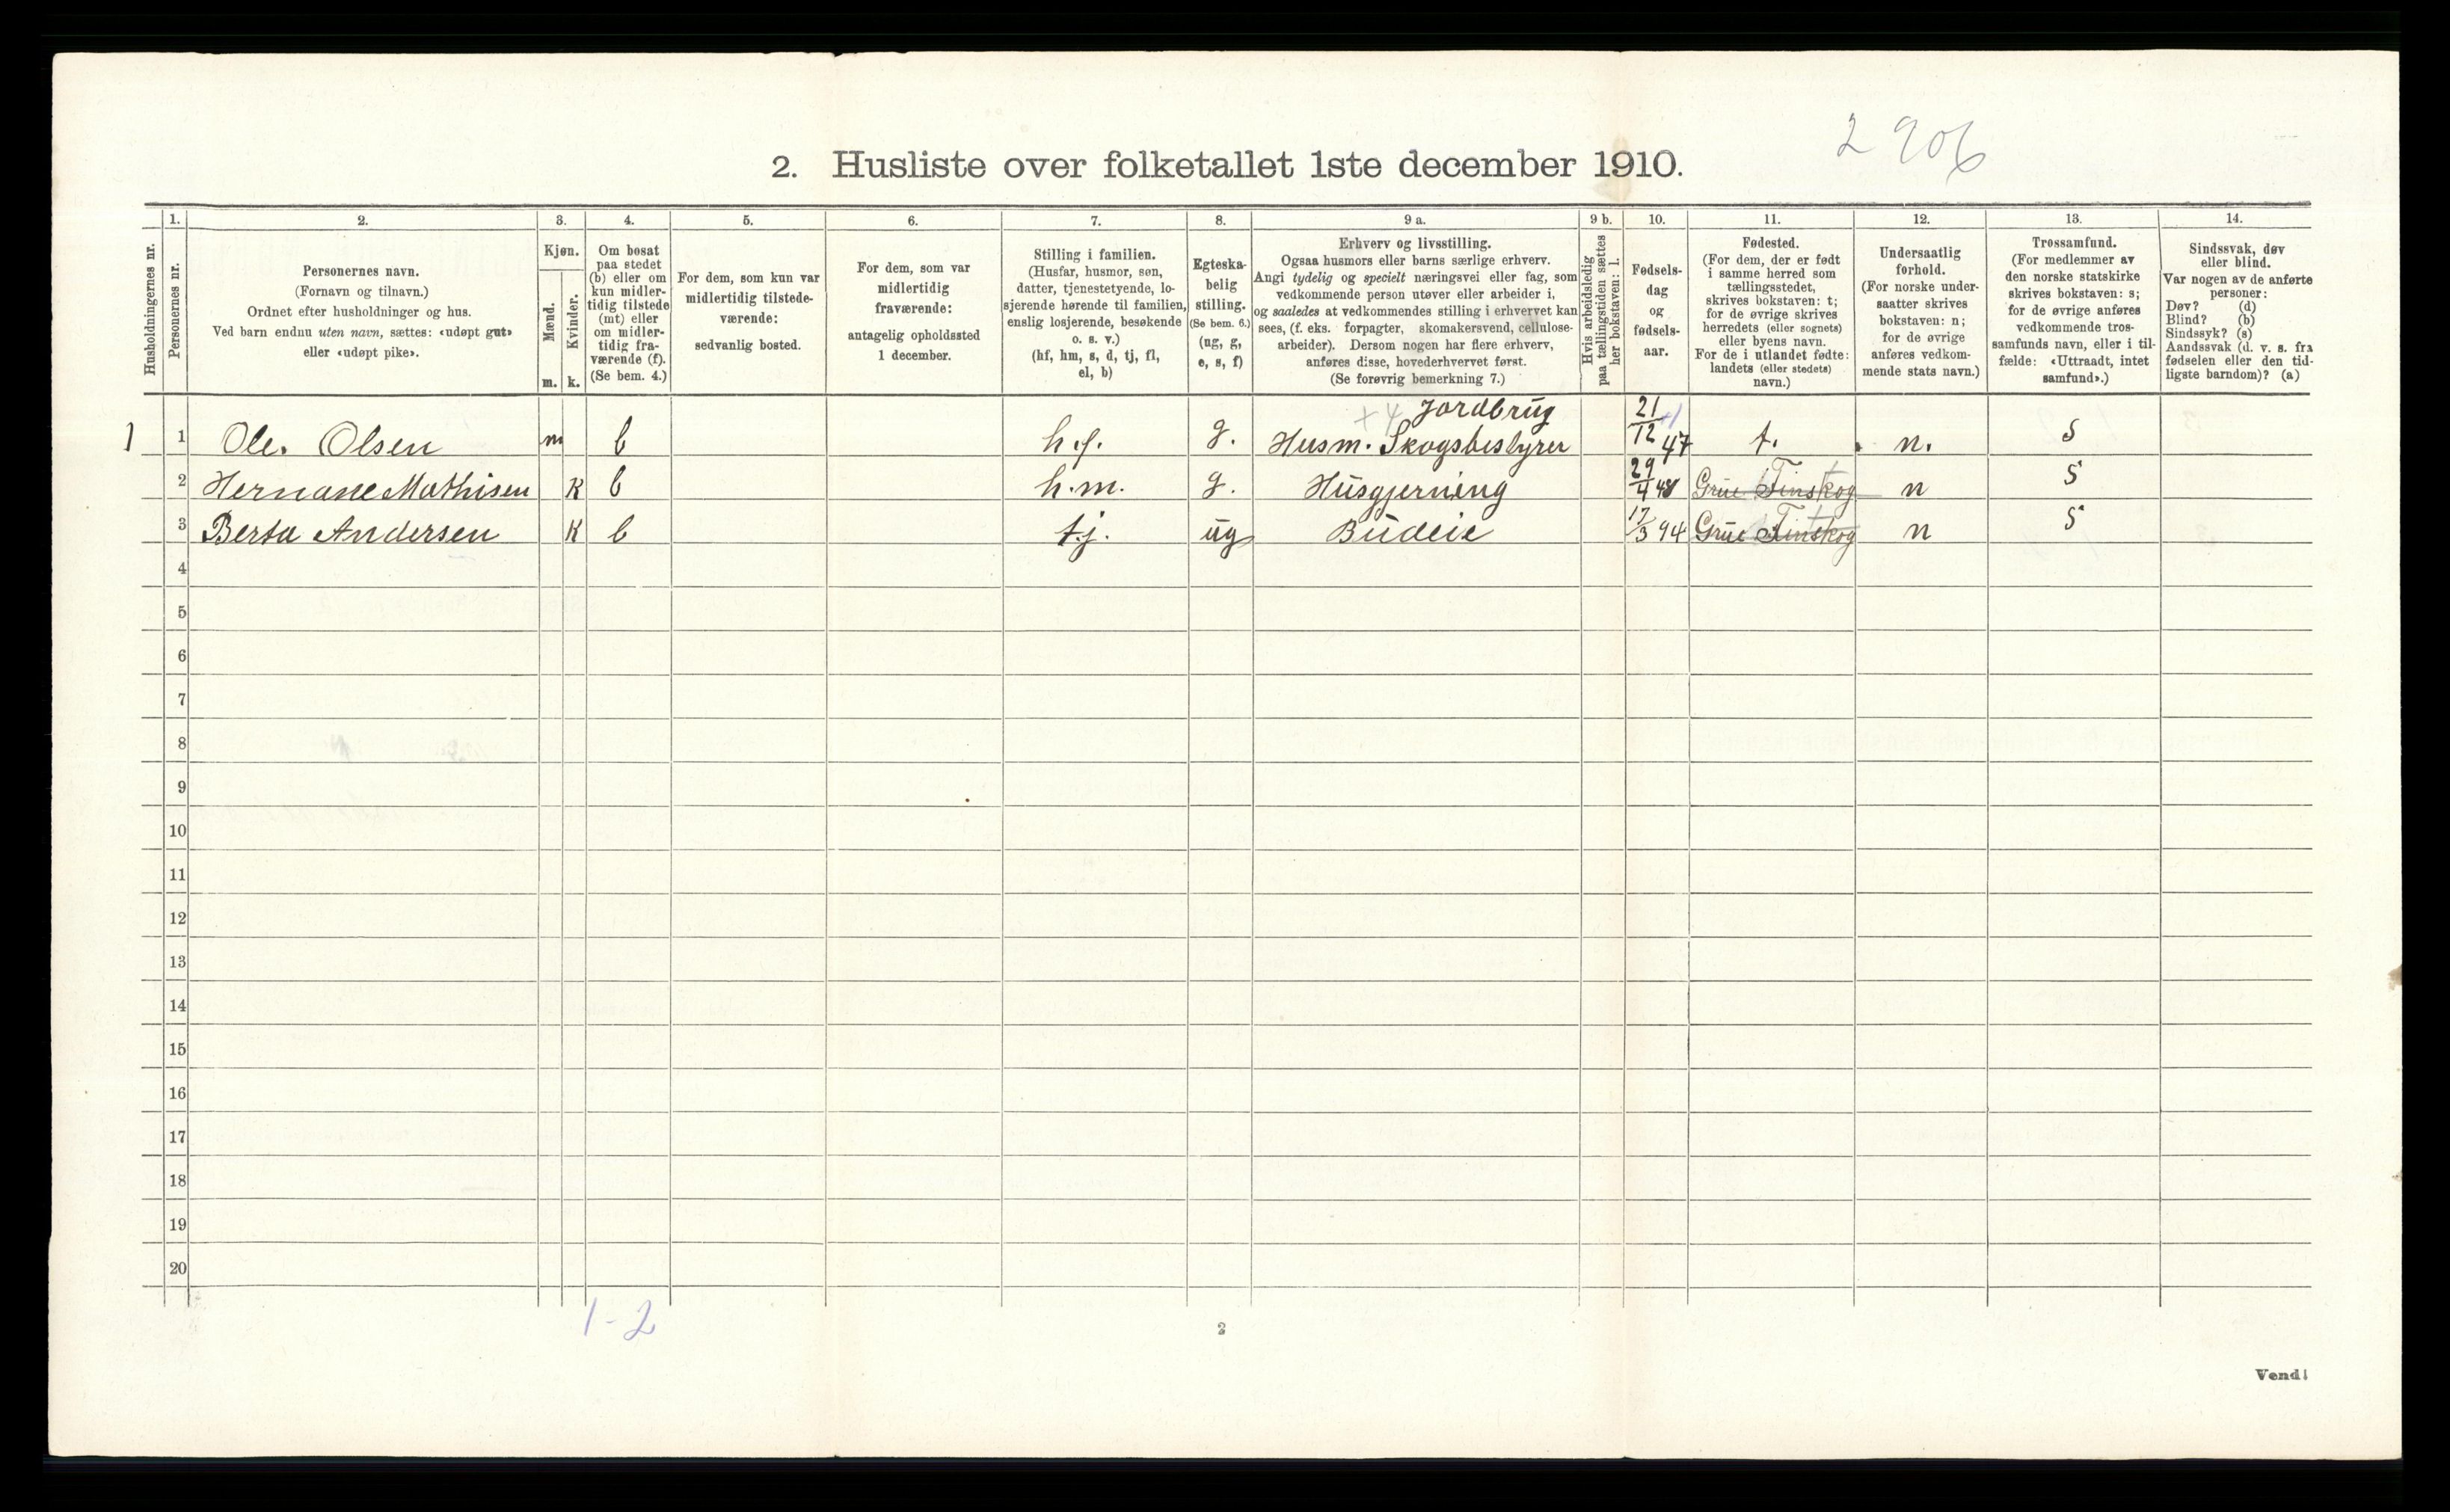 2 906
2. Husliste over folketallet 1ste december 1910.
1. 2. 3. 4. 5. 6. 7. 8. 9 a. 9 b. 10. 11. 12. 13. 14.
Husholdningernes nr.
Personernes nr.
Personernes navn.
(Fornavn og tilnavn.)
Ordnet efter husholdninger og hus.
Ved barn endnu uten navn, sættes: «udøpt gut»
eller «udøpt pike».
Kjøn.
Mænd.
Kvinder.
m. k.
Om bosat
paa stedet
(b) eller om
kun midler-
tidig tilstede
(mt) eller
om midler-
tidig fra-
værende (f).
(Se bem. 4.)
For dem, som kun var
midlertidig tilstede-
værende:
sedvanlig bosted.
For dem, som var
midlertidig
fraværende:
antagelig opholdssted
1 december.
Stilling i familien.
(Husfar, husmor, søn,
datter, tjenestetyende, lo-
sjerende hørende til familien,
enslig losjerende, besøkende
o. s. v.)
(hf, hm, s, d, tj, fl,
el, b)
Egteska-
belig
stilling.
(Se bem. 6.)
(ug, g,
e, s, f)
Erhverv og livsstilling.
Ogsaa husmors eller barns særlige erhverv.
Angi tydelig og specielt næringsvei eller fag, som
vedkommende person utøver eller arbeider i,
og saaledes at vedkommendes stilling i erhvervet kan
sees, (f. eks. forpagter, skomakersvend, cellulose-
arbeider). Dersom nogen har flere erhverv,
anføres disse, hovederhvervet først.
(Se forøvrig bemerkning 7.)
Hvis arbeidsledig
paa tællingstiden sættes
her bokstaven: l.
Fødsels-
dag
og
fødsels-
aar.
Fødested.
(For dem, der er født
i samme herred som
tællingsstedet,
skrives bokstaven: t;
for de øvrige skrives
herredets (eller sognets)
eller byens navn.
For de i utlandet fødte:
landets (eller stedets)
navn.)
Undersaatlig
forhold.
(For norske under-
saatter skrives
bokstaven: n;
for de øvrige
anføres vedkom-
mende stats navn.)
Trossamfund.
(For medlemmer av
den norske statskirke
skrives bokstaven: s;
for de øvrige anføres
vedkommende tros-
samfunds navn, eller i til-
fælde: «Uttraadt, intet
samfund».)
Sindssvak, døv
eller blind.
Var nogen av de anførte
personer:
Døv? (d)
Blind? (b)
Sindssyk? (s)
Aandssvak (d. v. s. fra
fødselen eller den tid-
ligste barndom)? (a)
+4 Jordbrug
1 1 Ole. Olsen m b h.f. g. Husm. Skogsbestyrer 21/12 47 t. n. s
2 Hernane Mathisen K b h.m. g. Husgjerning 29/4 48 Grue Finskog n s
3 Berta Andersen K b t.j. ug Budeie 17/3 94 Grue Finskog n s
4
5
6
7
8
9
10
11
12
13
14
15
16
17
18
19
20
1-2
2
Vend!